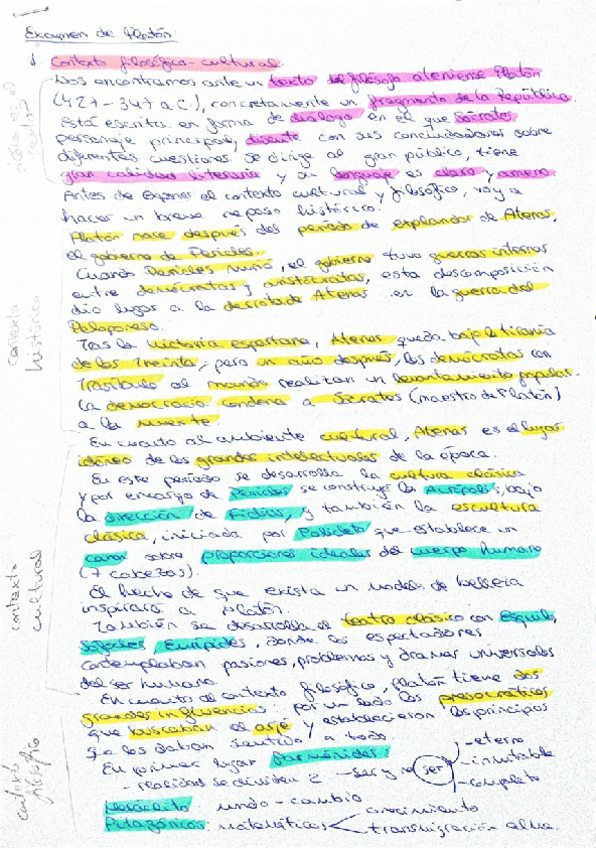 Examen de Platón.
1. Contexto filosófico-cultural.
Nos encontramos ante un texto del filósofo ateniense Platón
(427-347 a.C.), concretamente un fragmento de la República.
Está escrita en forma de diálogo en el que Sócrates,
personaje principal, discute con sus conciudadanos sobre
diferentes cuestiones. Se dirige al gran público, tiene
gran calidad literaria y su lenguaje es claro y ameno.
Antes de exponer el contexto cultural y filosófico, voy a
hacer un breve repaso histórico.
Platón nace después del período de esplendor de Atenas,
el gobierno de Pericles.
Cuando Pericles murió, el gobierno tuvo guerras internas
entre demócratas y aristócratas, esta descomposición
dio lugar a la derrota de Atenas en la guerra del
Peloponeso.
Tras la victoria espartana, Atenas queda bajo la tiranía
de los Treinta, pero un año después, los demócratas con
Trasíbulo al mando realizan un levantamiento popular.
La democracia condena a Sócrates (maestro de Platón)
a la muerte.
En cuanto al ambiente cultural, Atenas es el lugar
idóneo de los grandes intelectuales de la época.
En este período se desarrolla la cultura clásica
y por encargo de Pericles se construye la Acrópolis, bajo
la dirección de Fidias, y también la escultura
clásica, iniciada por Policleto que establece un
canon sobre proporciones ideales del cuerpo humano
(7 cabezas).
El hecho de que exista un modelo de belleza
inspirará a Platón.
También se desarrolla el teatro clásico con Esquilo,
Sófocles, Eurípides, donde los espectadores
contemplaban pasiones, problemas y dramas universales
del ser humano.
En cuanto al contexto filosófico, Platón tiene dos
grandes influencias: por un lado los presocráticos
que buscaban el arjé y establecieron los principios
que les daban sentido a todo.
En primer lugar Parménides:
- realidad se divide en 2 - ser y no ser
- eterno
- inmutable
- completo
Heráclito: mundo - cambio
Pitagóricos: matemáticas
crecimiento
transmigración alma.
contexto
histórico
contexto
cultural
contexto
filosófico